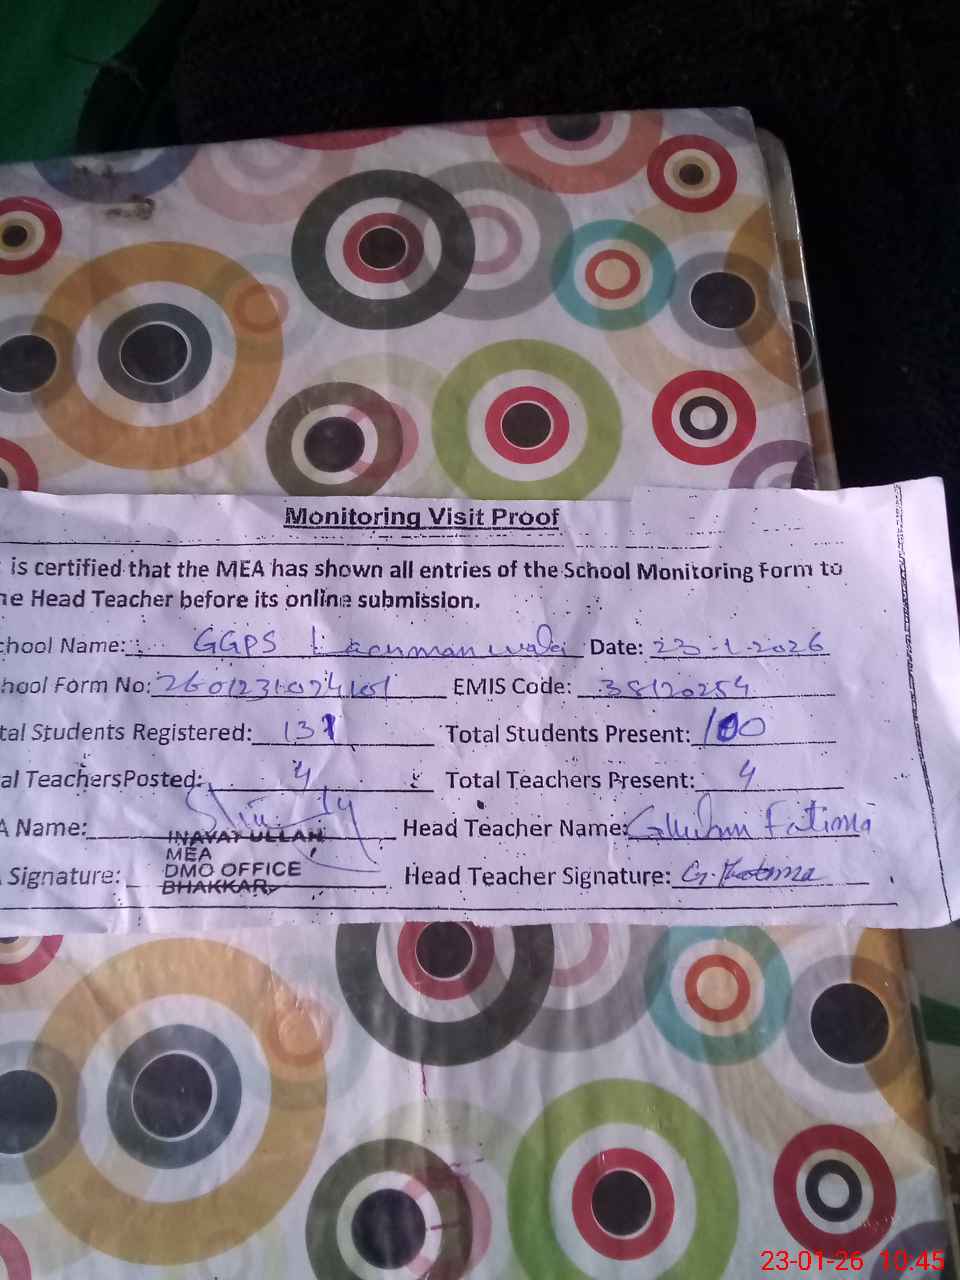 Monitoring Visit Proof
is certified that the MEA has shown all entries of the School Monitoring Form to
he Head Teacher before its online submission.
chool Name: GGPS Lachman wala Date: 23-1-2026
hool Form No: EMIS Code: 38120254
tal Students Registered: 131 Total Students Present: 100
al TeachersPosted: 4 Total Teachers Present: 4
A Name: Head Teacher Name: Fatima
INAYAT ULLAH
MEA
DMO OFFICE
BHAKKAR
Signature: Head Teacher Signature: G. Fatima
23-01-26 10:45